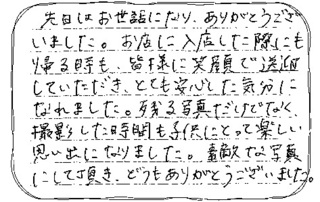 先日はお世話になり、ありがとうござ
いました。お店に入店した際にも
帰る時も、皆様に笑顔で送迎
していただき、とても安心した気分に
なれました。残る写真だけでなく、
撮影した時間も子供にとって楽しい
思い出になりました。素敵な写真
にして頂き、どうもありがとうございました。